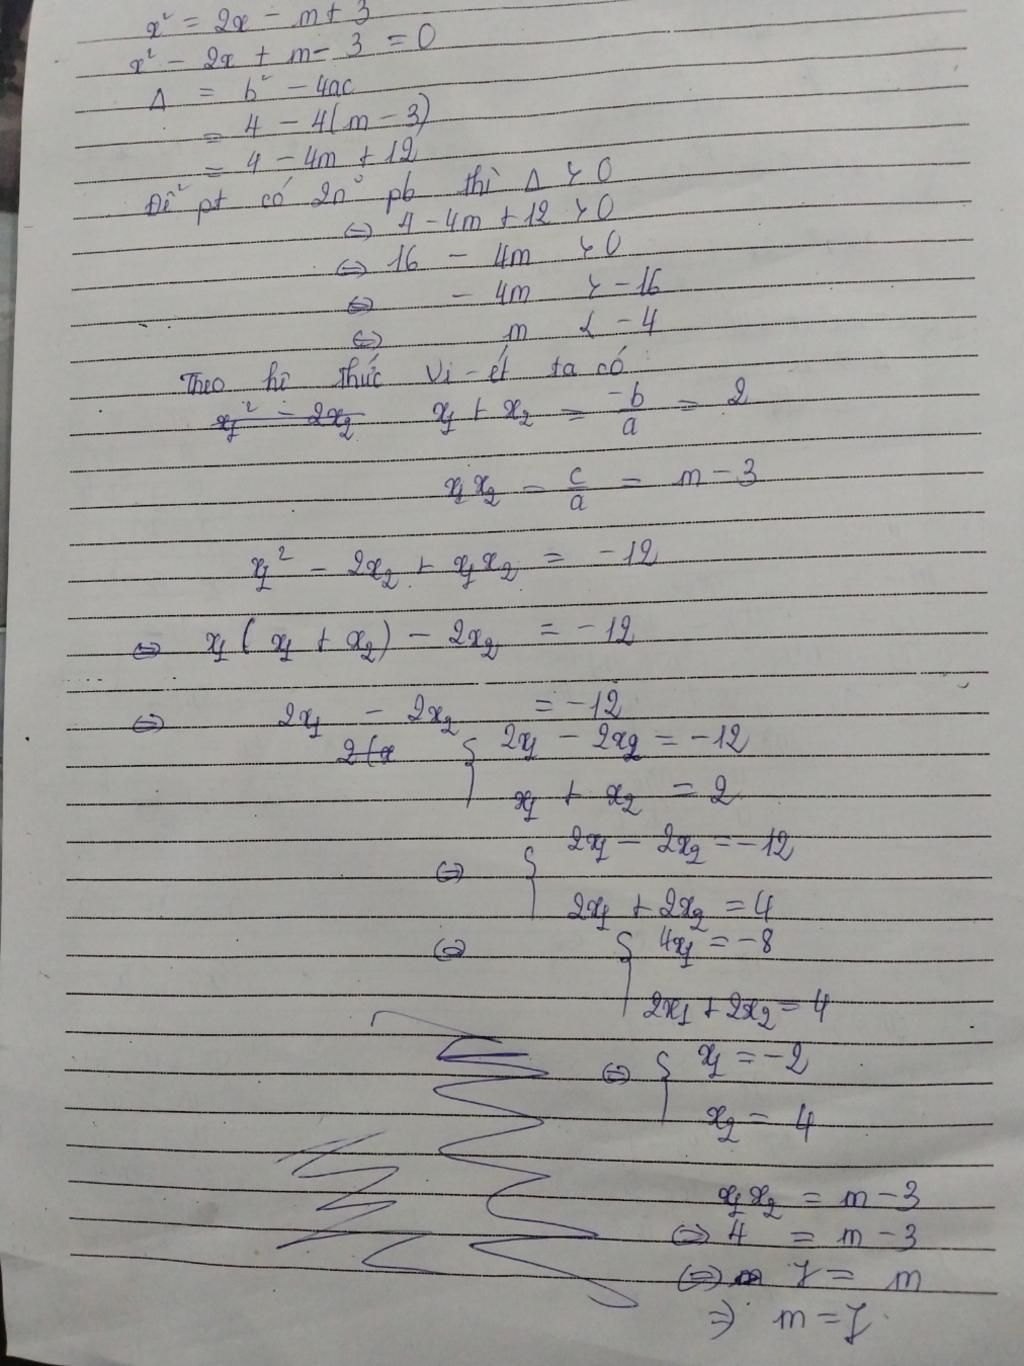 x² = 2x - m + 3
x² - 2x + m - 3 = 0
Δ = b² - 4ac
= 4 - 4(m - 3)
= 4 - 4m + 12
Để pt có 2n⁰ pb thì Δ > 0
⇔ 4 - 4m + 12 > 0
⇔ 16 - 4m > 0
⇔ - 4m > -16
⇔ m < -4
Theo hệ thức Vi-ét ta có
x₁² - 2x₂ x₁ + x₂ = -b/a = 2
x₁x₂ = c/a = m - 3
x₁² - 2x₂ + x₁x₂ = -12
⇔ x₁(x₁ + x₂) - 2x₂ = -12
⇔ 2x₁ - 2x₂ = -12
2(x { 2x₁ - 2x₂ = -12
x₁ + x₂ = 2
⇔ { 2x₁ - 2x₂ = -12
2x₁ + 2x₂ = 4
⇔ { 4x₁ = -8
2x₁ + 2x₂ = 4
⇔ { x₁ = -2
x₂ = 4
x₁x₂ = m - 3
⇔ 4 = m - 3
⇔ 7 = m
⇒ m = 7